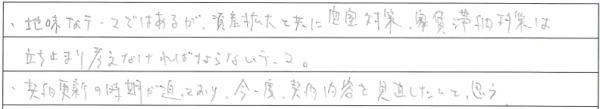 ・地味なテーマではあるが、資産拡大と共に空室対策、家賃滞納対策は
立ち止まり考えなければならないテーマ。
・契約更新の時期が迫っており、今一度、契約内容を見直したいと思う